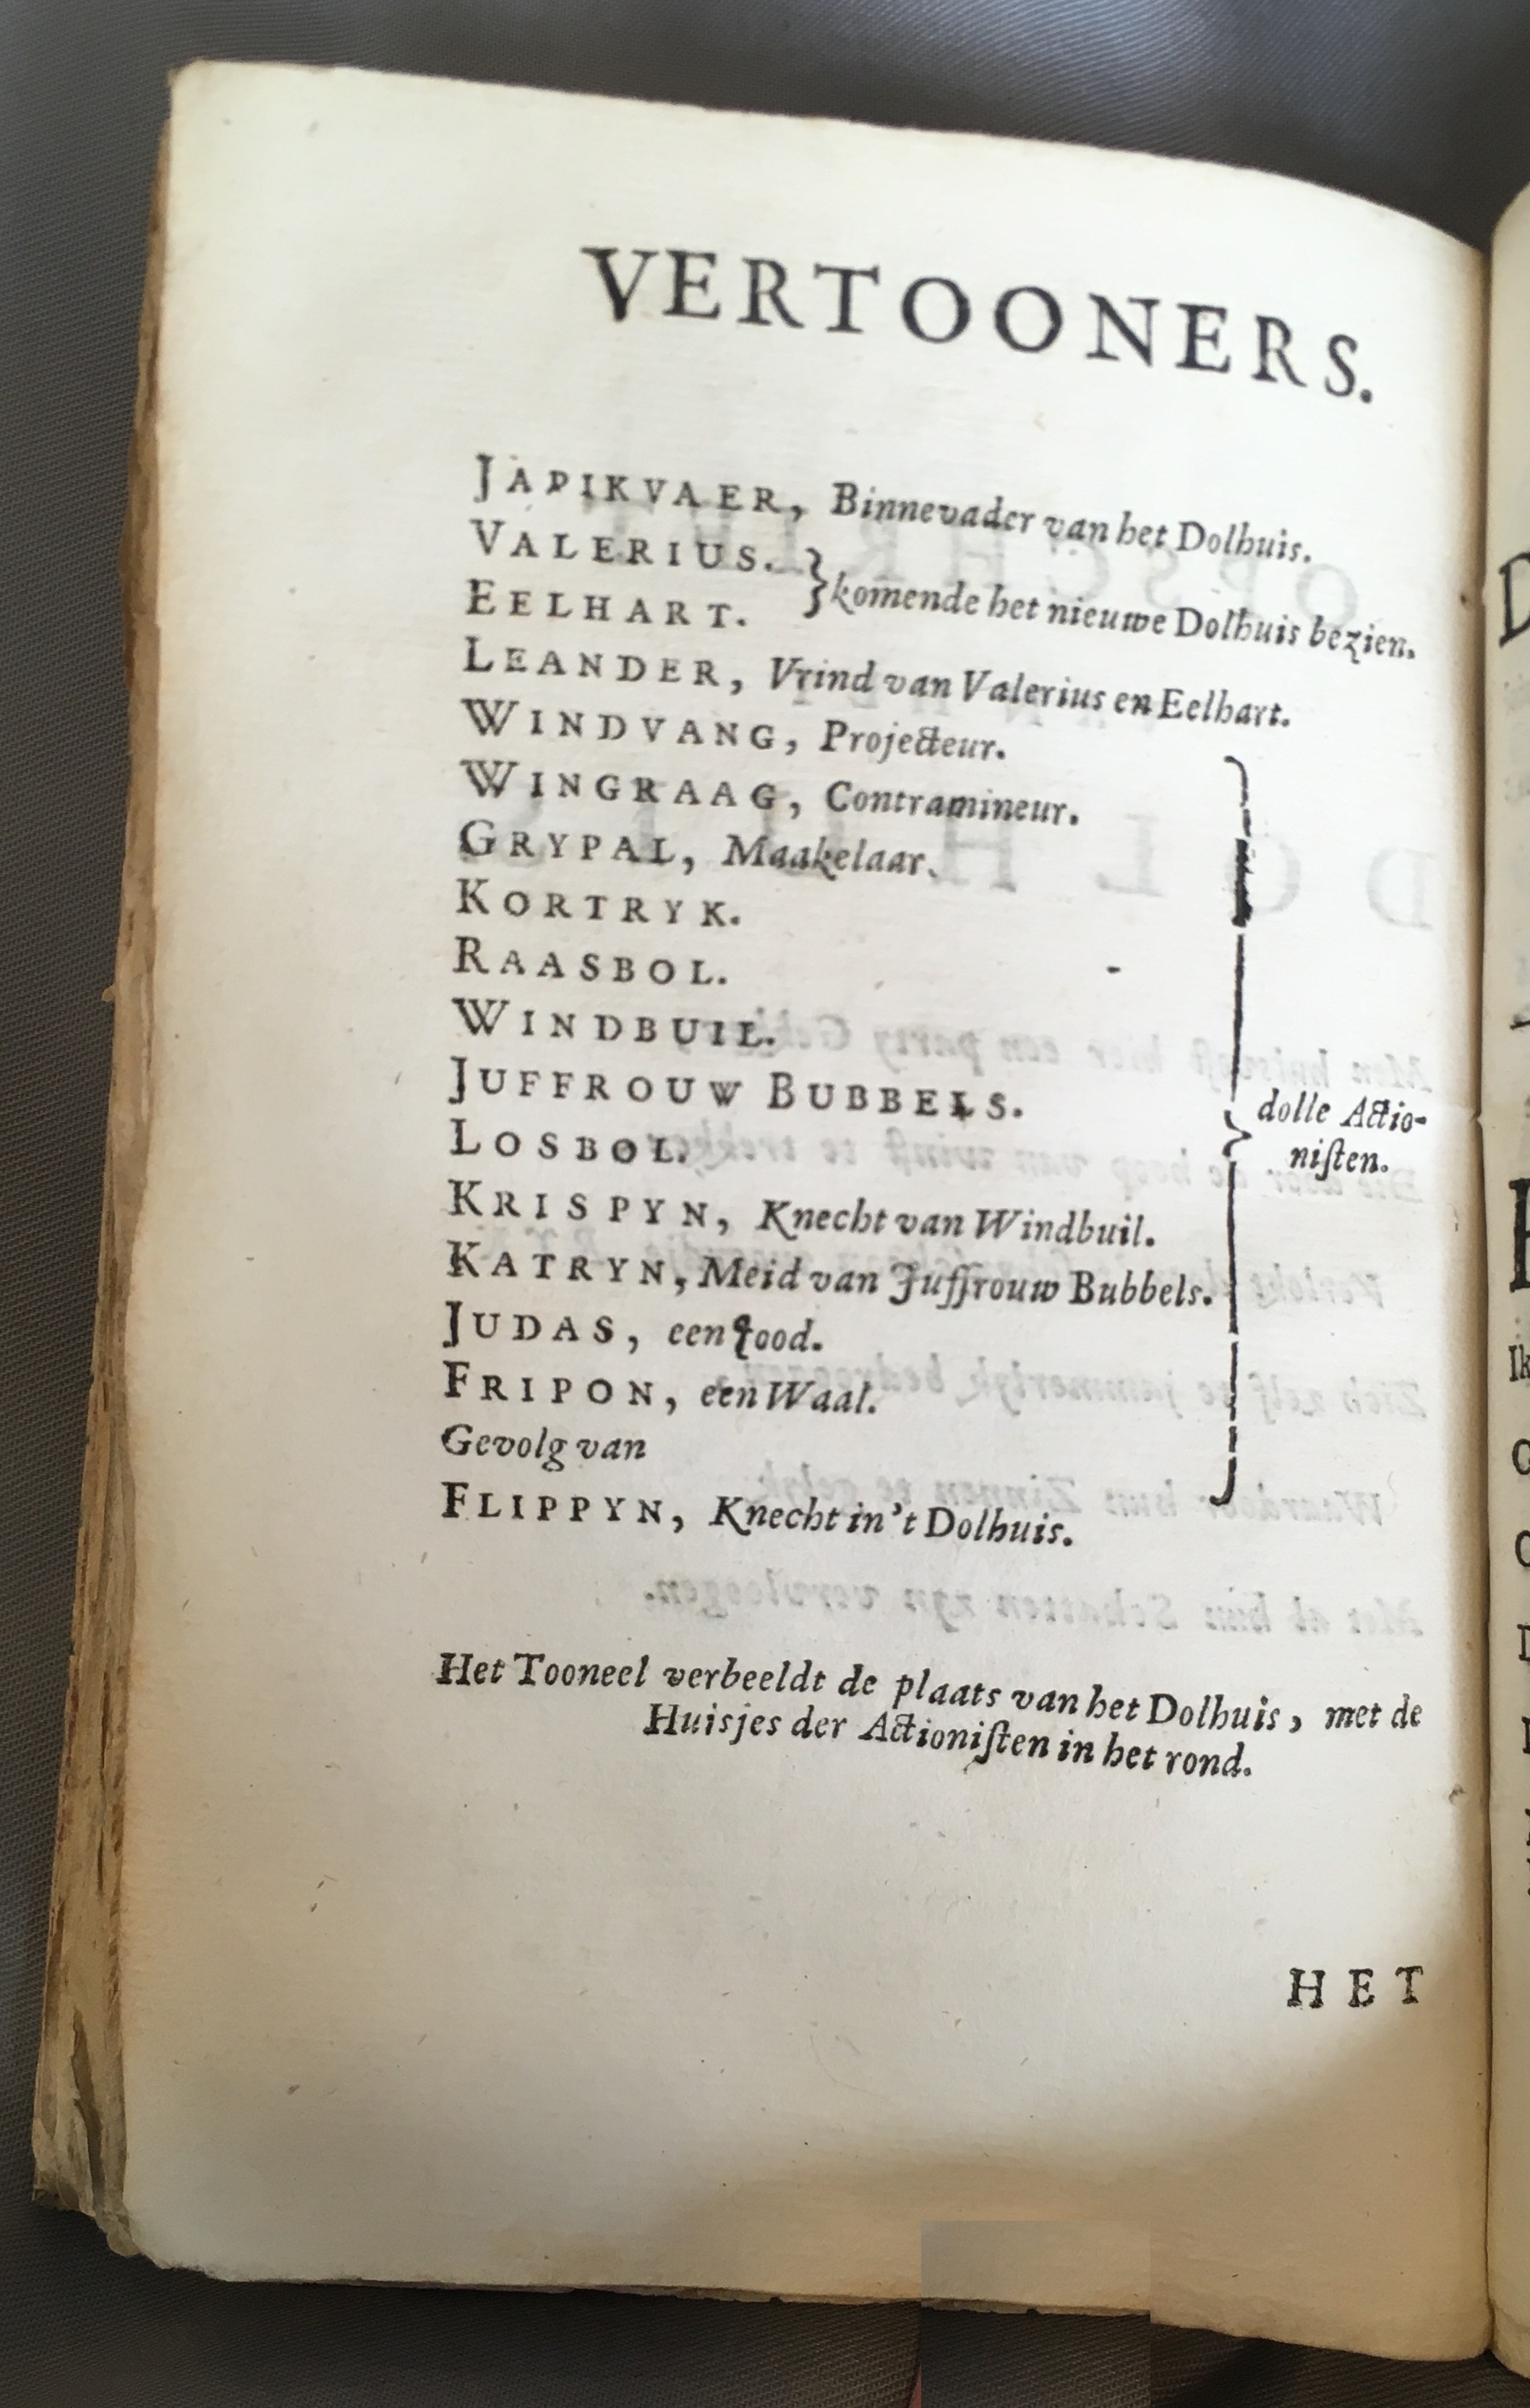 VERTOONERS.
JAPIKVAER, Binnevader van het Dolhuis.
VALERIUS.
EELHART. } komende het nieuwe Dolhuis bezien.
LEANDER, Vrind van Valerius en Eelhart.
WINDVANG, Projecteur.
WINGRAAG, Contramineur.
GRYPAL, Maakelaar.
KORTRYK.
RAASBOL.
WINDBUIL.
JUFFROUW BUBBELS.
LOSBOL.
KRISPYN, Knecht van Windbuil.
KATRYN, Meid van Juffrouw Bubbels.
JUDAS, een Jood.
FRIPON, een Waal.
Gevolg van
} dolle Actio-
niſten.
FLIPPYN, Knecht in't Dolhuis.
Het Tooneel verbeeldt de plaats van het Dolhuis, met de
Huisjes der Actioniſten in het rond.
HET